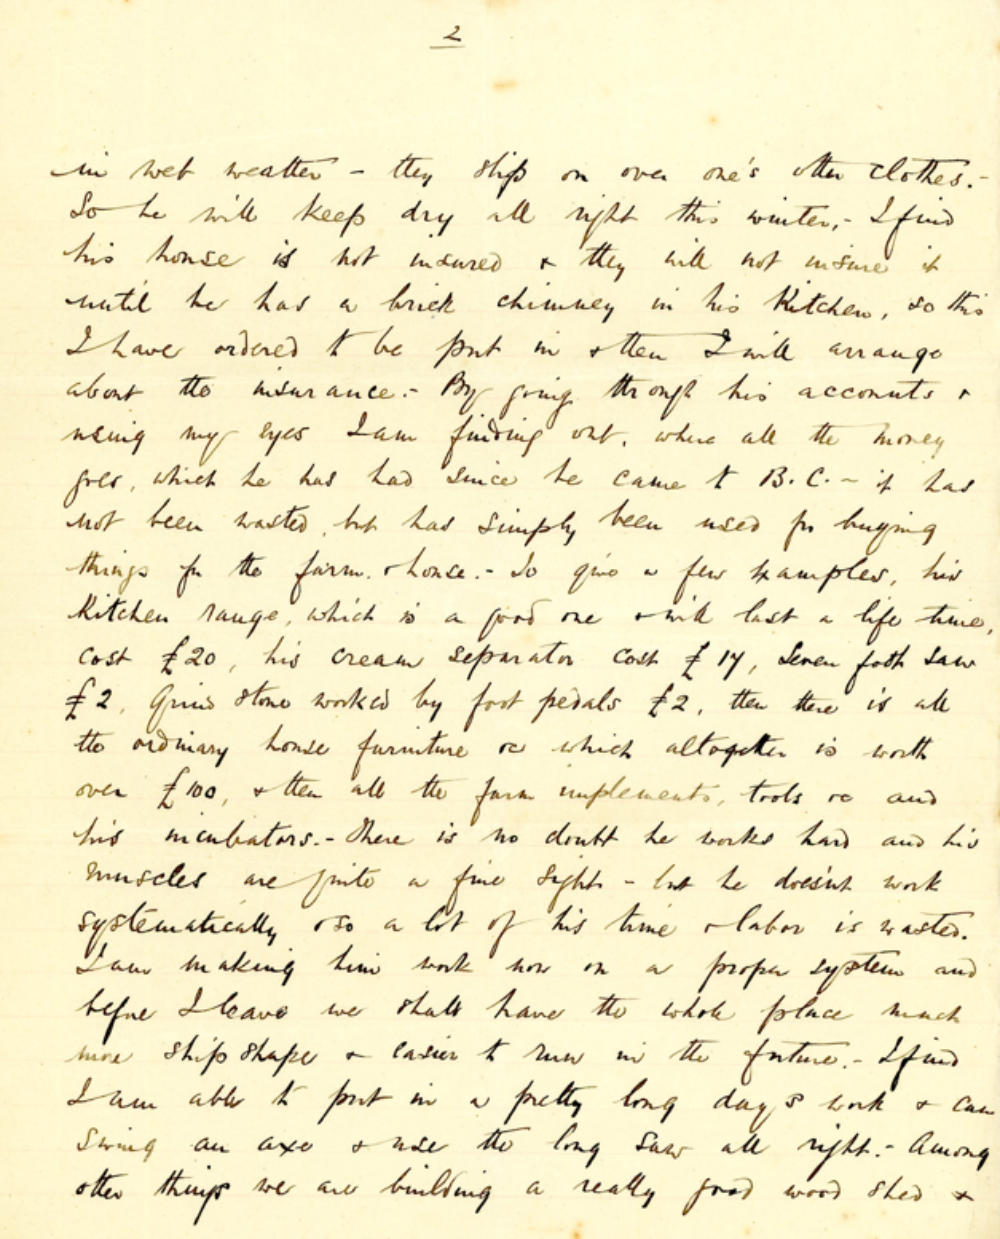 2
in wet weather - they slip on over one's other clothes.-
So he will keep dry all right this winter,- I find
his house is not insured & they will not insure it
until he has a brick chimney in his kitchen, so this
I have ordered to be put in & then I will arrange
about the insurance.- By going through his accounts &
using my eyes I am finding out, where all the money
goes, which he has had since he came to B.C. - it has
not been wasted, but has simply been used for buying
things for the farm & house.- To give a few examples, his
Kitchen range, which is a good one & will last a life time,
cost £20, his cream separator cost £17, seven foot saw
£2, Grind stone worked by foot pedals £2, then there is all
the ordinary house furniture &c which altogether is worth
over £100, & then all the farm implements, tools &c and
his incubators.- There is no doubt he works hard and his
muscles are quite a fine sight - but he doesn't work
systematically & so a lot of his time & labor is wasted.
I am making him work now on a proper system and
before I leave we shall have the whole place much
more ship shape & easier to run in the future.- I find
I am able to put in a pretty long day's work & can
swing an axe & use the long saw all right.- Among
other things we are building a really good wood shed &